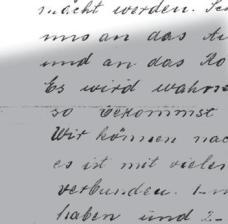 macht werden. Sc
uns an das Au
und an das Ro
Es wird wahrs
so bekommst
Wir können nac
es ist mit vielen
verbunden. 1-
haben und 2-